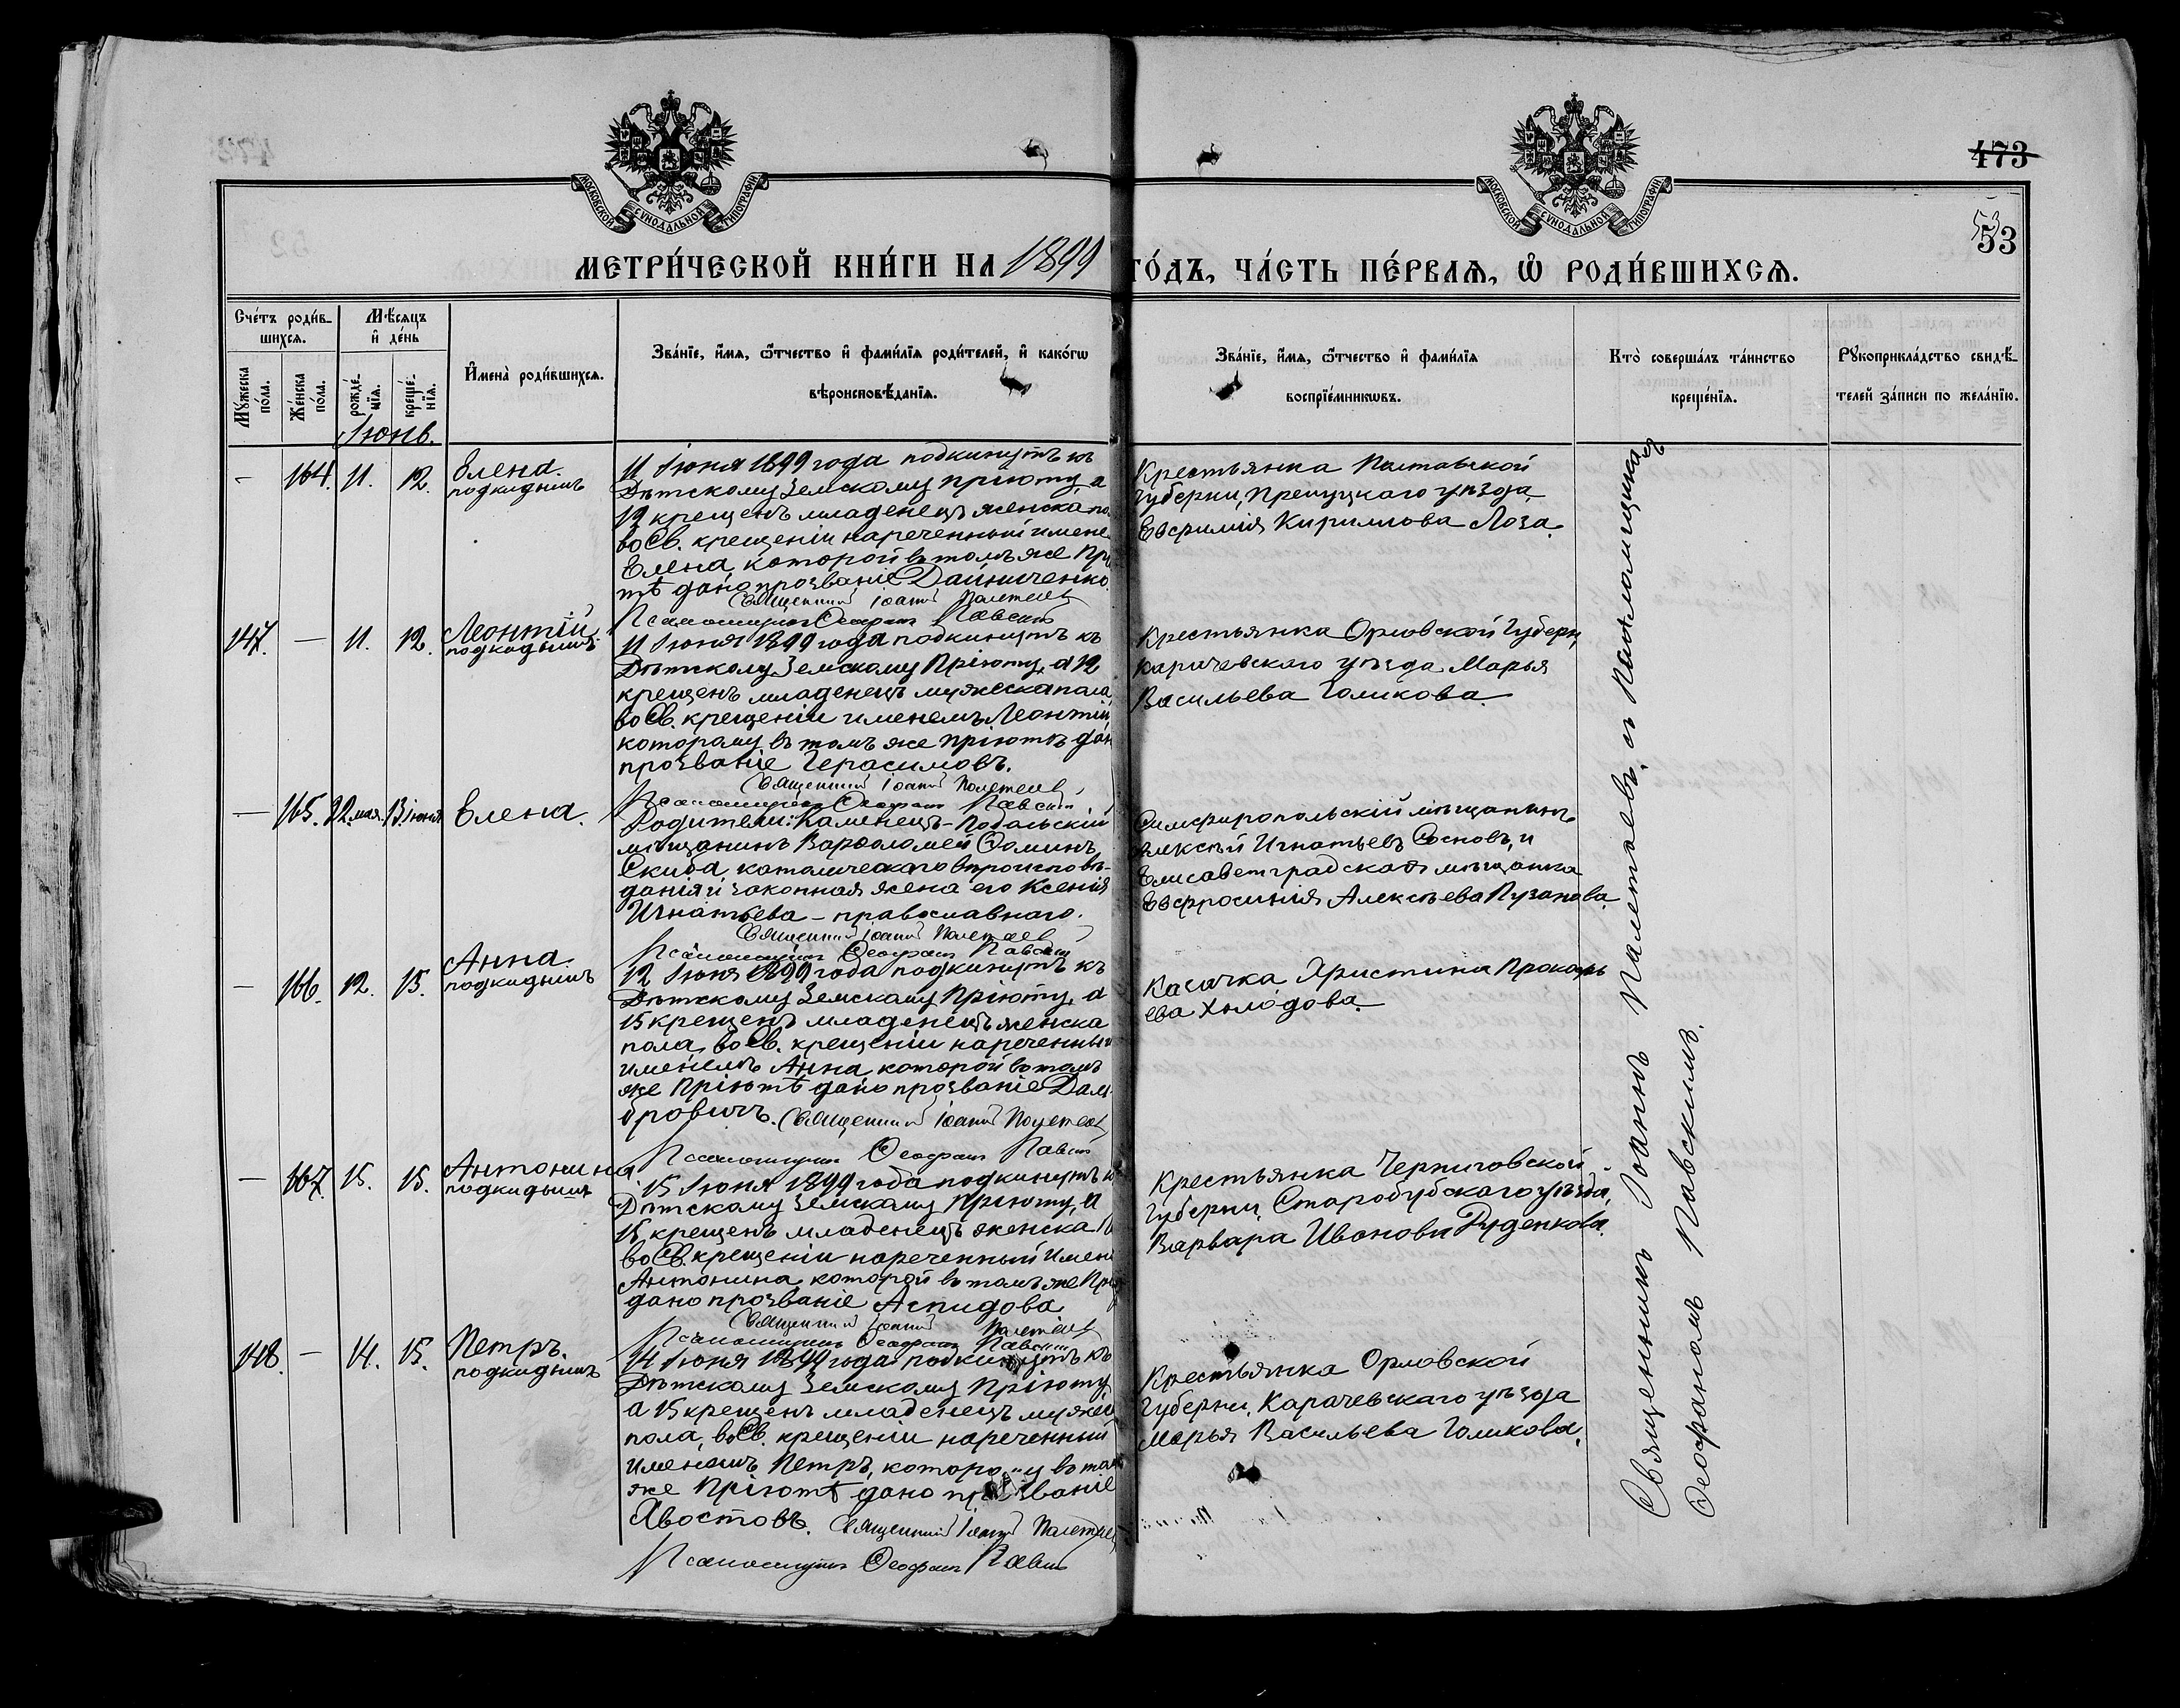 473
53
МОСКОВСКОЙ СѴНОДАЛЬНОЙ ТИПОГРАФІИ
МОСКОВСКОЙ СѴНОДАЛЬНОЙ ТИПОГРАФІИ
МЕТРИ́ЧЕСКОЙ КНИ́ГИ НА 1899 ГО́ДЪ, ЧА́СТЬ ПЕ́РВАѦ, Ѡ҆ РОДИ́ВШИХСѦ.
Сче́тъ роди́в-
шихсѧ.
Мꙋ́жеска по́ла.
Же́нска по́ла.
Мѣ́сѧцъ
и҆ де́нь
рожде́-нїѧ.
креще́-нїѧ.
И҆мена̀ роди́вшихсѧ.
Зва́нїе, и҆́мѧ, ѻ҆́тчество и҆ фами́лїѧ роди́телей, и҆ како́гѡ
вѣроисповѣ́данїѧ.
Зва́нїе, и҆́мѧ, ѻ҆́тчество и҆ фами́лїѧ
воспрїе́мникѡвъ.
Кто̀ соверша́лъ та́инство
креще́нїѧ.
Рꙋкоприкла́дство свидѣ́-
телей за́писи по жела́нїю.
Іюнь.
— 164. 11. 12. Елена.
подкидышъ
11 Іюня 1899 года подкинутъ къ
Дѣтскому Земскому пріюту, а
12 крещенъ младенецъ женска по
во Св. крещеніи нареченный имене
Елена, которой въ томъ же Прі
тѣ дано прозваніе Дайниченко.
Священникъ Іоаннъ Полетаевъ
Псаломщикъ Ѳеофанъ Павскій
Крестьянка Полтавской
Губерніи, Прилуцкаго уѣзда
Евфимія Кириллова Лоза.
147. — 11. 12. Леонтій
подкидышъ
11 Іюня 1899 года подкинутъ къ
Дѣтскому Земскому Пріюту, а 12
крещенъ младенецъ мужеска пола,
во Св. крещеніи именемъ Леонтій,
которому въ томъ же пріютѣ дан
прозваніе Герасимовъ.
Священникъ Іоаннъ Полетаевъ
Псаломщикъ Ѳеофанъ Павскій
Крестьянка Орловской Губерн,
Карачевскаго уѣзда Марья
Васильева Голикова.
— 165. 22 мая. 13 іюня Елена.
Родители: Каменецъ-Подольскій
мѣщанинъ Варѳоломей Ѳоминъ
Скиба, католическаго вѣроисповѣ-
данія и законная жена его Ксенія
Игнатьева – православнаго.
Священникъ Іоаннъ Полетаевъ
Псаломщикъ Ѳеофанъ Павскій
Симферопольскій мѣщанинъ
Алексѣй Игнатьевъ Сосновъ, и
Елисаветградская мѣщанка
Евфросинія Алексѣева Пузанова.
— 166. 12. 15. Анна
подкидышъ
12 Іюня 1899 года подкинутъ къ
Дѣтскому Земскому Пріюту, а
15 крещенъ младенецъ женска
пола, во Св. крещеніи нареченный
именемъ Анна, которой въ томъ
же Пріютѣ дано прозваніе Дам-
бровичъ. Священникъ Іоаннъ Полетаевъ
Псаломщикъ Ѳеофанъ Павскій
Казачка Христина Прокофь
ева Холодова.
— 167. 15. 15. Антонина
подкидышъ
15 Іюня 1899 года подкинутъ к
Дѣтскому Земскому Пріюту, а
15 крещенъ младенецъ женска
во Св. крещеніи нареченный имен
Антонина, которой въ томъ же Прі
дано прозваніе Аспидова
Священникъ Іоаннъ Полетаевъ
Псаломщикъ Ѳеофанъ Павскій
Крестьянка Черниговской
Губерніи, Стародубскаго уѣзда,
Варвара Иванова Руденкова.
148. — 14. 15. Петръ.
подкидышъ
14 Іюня 1899 года подкинутъ къ
Дѣтскому Земскому Пріюту
а 15 крещенъ младенецъ мужес
пола, во Св. крещеніи нареченный
именемъ Петръ, которому въ том
же Пріютѣ дано прозваніе
Хвостовъ. Священникъ Іоаннъ Полетаевъ
Псаломщикъ Ѳеофанъ Павскій
Крестьянка Орловской
Губерніи, Карачевскаго уѣзда
Марья Васильева Голикова.
Священникъ Іоаннъ Полетаевъ, съ Псаломщикомъ
Ѳеофаномъ Павскимъ.